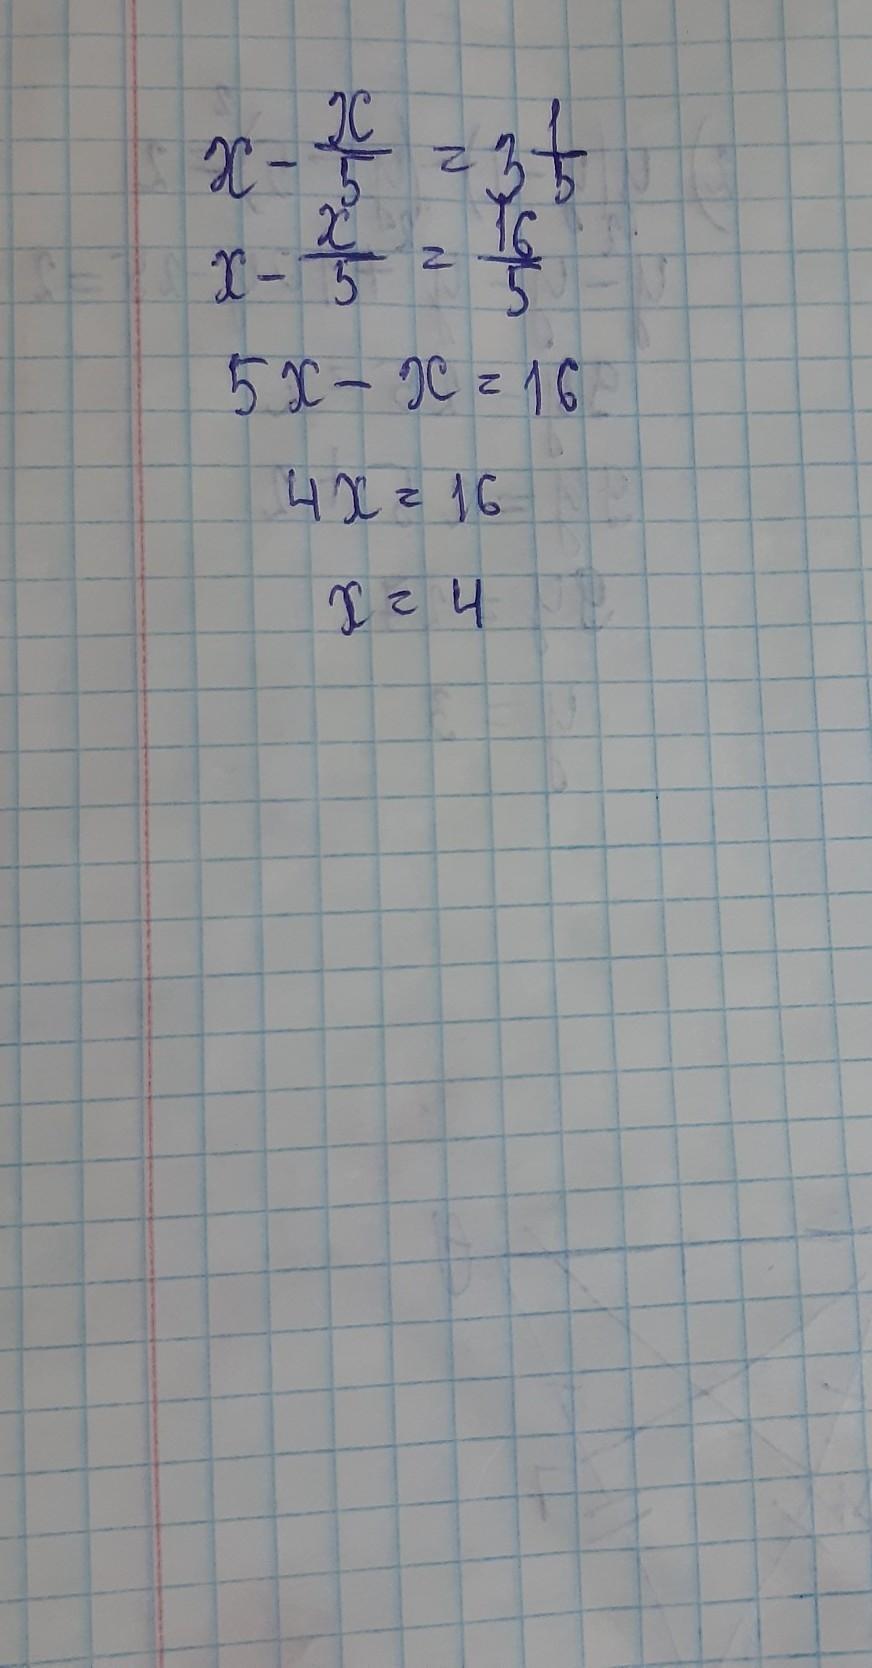 x - x/5 = 3 1/5
x - x/5 = 16/5
5x - x = 16
4x = 16
x = 4